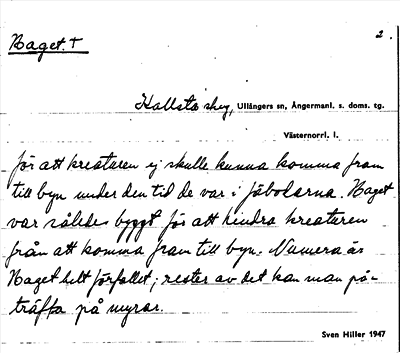 Baget. † 2.
Hallsta skog, Ullångers sn, Ångermanl. s. doms. tg.
Västernorrl. l.
för att kreaturen ej skulle kunna komma fram
till byn under den tid de var i fäbodarna. Baget
var således byggt för att hindra kreaturen
från att komma fram till byn. Numera är
Baget helt förfallet; rester av det kan man på-
träffa på myrar.
Sven Hiller 1947